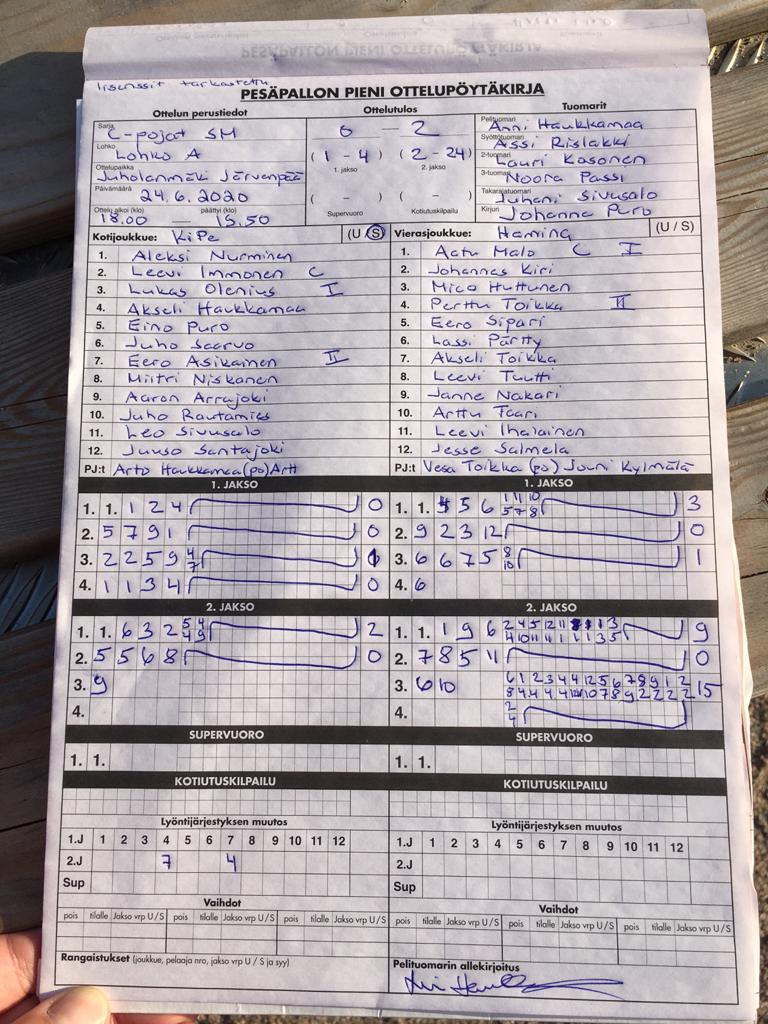 lisenssit tarkastettu
PESÄPALLON PIENI OTTELUPÖYTÄKIRJA
Ottelun perustiedot
Sarja C-pojat SM
Lohko Lohko A
Ottelupaikka Juholanmäki Järvenpää
Päivämäärä 24.6.2020
Ottelu alkoi (klo) päättyi (klo)
18.00 — 15.50
Ottelutulos
0 — 2
(1 - 4) (2 - 24)
1. jakso 2. jakso
( - ) ( - )
Supervuoro Kotiutuskilpailu
Tuomarit
Pelituomari Anni Haukkamaa
Syöttötuomari Assi Rislakki
2-tuomari Lauri Kosonen
3-tuomari Noora Passi
Takarajatuomari Juhani Sivusalo
Kirjuri Johanna Puro
Kotijoukkue: KiPe (U / S)
1. Aleksi Nurminen
2. Leevi Immonen C
3. Lukas Olenius I
4. Akseli Haukkamaa
5. Eino Puro
6. Juho Saarvo
7. Eero Asikainen II
8. Miitri Niskanen
9. Aaron Arrajoki
10. Juho Rautamies
11. Leo Sivusalo
12. Juuso Santajoki
PJ:t Arto Haukkamaa (po) Artt
Vierasjoukkue: Haming (U / S)
1. Aatu Malo C I
2. Johannes Kiri
3. Mico Huttunen
4. Perttu Toikka II
5. Eero Sipari
6. Lassi Pärtty
7. Akseli Toikka
8. Leevi Tuutti
9. Janne Nakari
10. Arttu Taari
11. Leevi Ihalainen
12. Jesse Salmela
PJ:t Vesa Toikka (po) Jouni Kylmälä
1. JAKSO
1. 1. 1 2 4 0
2. 5 7 9 1 0
3. 2 2 5 9 4 7
4. 1 1 3 4 0
2. JAKSO
1. 1. 6 3 2 5 4 4 9 2
2. 5 5 6 8 0
3. 9
4.
SUPERVUORO
1. 1.
KOTIUTUSKILPAILU
Lyöntijärjestyksen muutos
1.J 1 2 3 4 5 6 7 8 9 10 11 12
2.J 7 4
Sup
Vaihdot
pois tilalle Jakso vrp U / S pois tilalle Jakso vrp U / S pois tilalle Jakso vrp U / S
Rangaistukset (joukkue, pelaaja nro, jakso vrp U / S ja syy)
1. JAKSO
1. 1. 5 6 1 11 10 5 7 8 3
2. 9 2 3 12 0
3. 6 6 7 5 8 10 1
4. 6
2. JAKSO
1. 1. 1 9 6 2 4 5 12 11 1 3 9
2. 7 8 5 11 0
3. 6 10 6 1 2 3 4 4 12 5 6 7 8 9 1 2 15
4. 2 4
SUPERVUORO
1. 1.
KOTIUTUSKILPAILU
Lyöntijärjestyksen muutos
1.J 1 2 3 4 5 6 7 8 9 10 11 12
2.J
Sup
Vaihdot
pois tilalle Jakso vrp U / S pois tilalle Jakso vrp U / S pois tilalle Jakso vrp U / S
Pelituomarin allekirjoitus